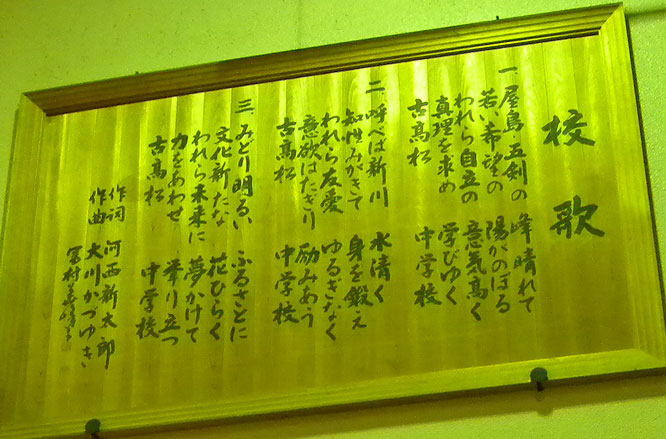 校歌
一、屋島五剣の 峰晴れて
若い希望の 陽がのぼる
われら自立の 意気高く
真理を求め 学びゆく
古高松 中学校
二、呼べば新川 水清く
知性みがきて 身を鍛え
われら友愛 ゆるぎなく
意欲はたぎり 励みあう
古高松 中学校
三、みどり明るい ふるさとに
文化新たな 花ひらく
われら未来に 夢かけて
力をあわせ 挙り立つ
古高松 中学校
作詞 河西新太郎
作曲 大川かづゆき